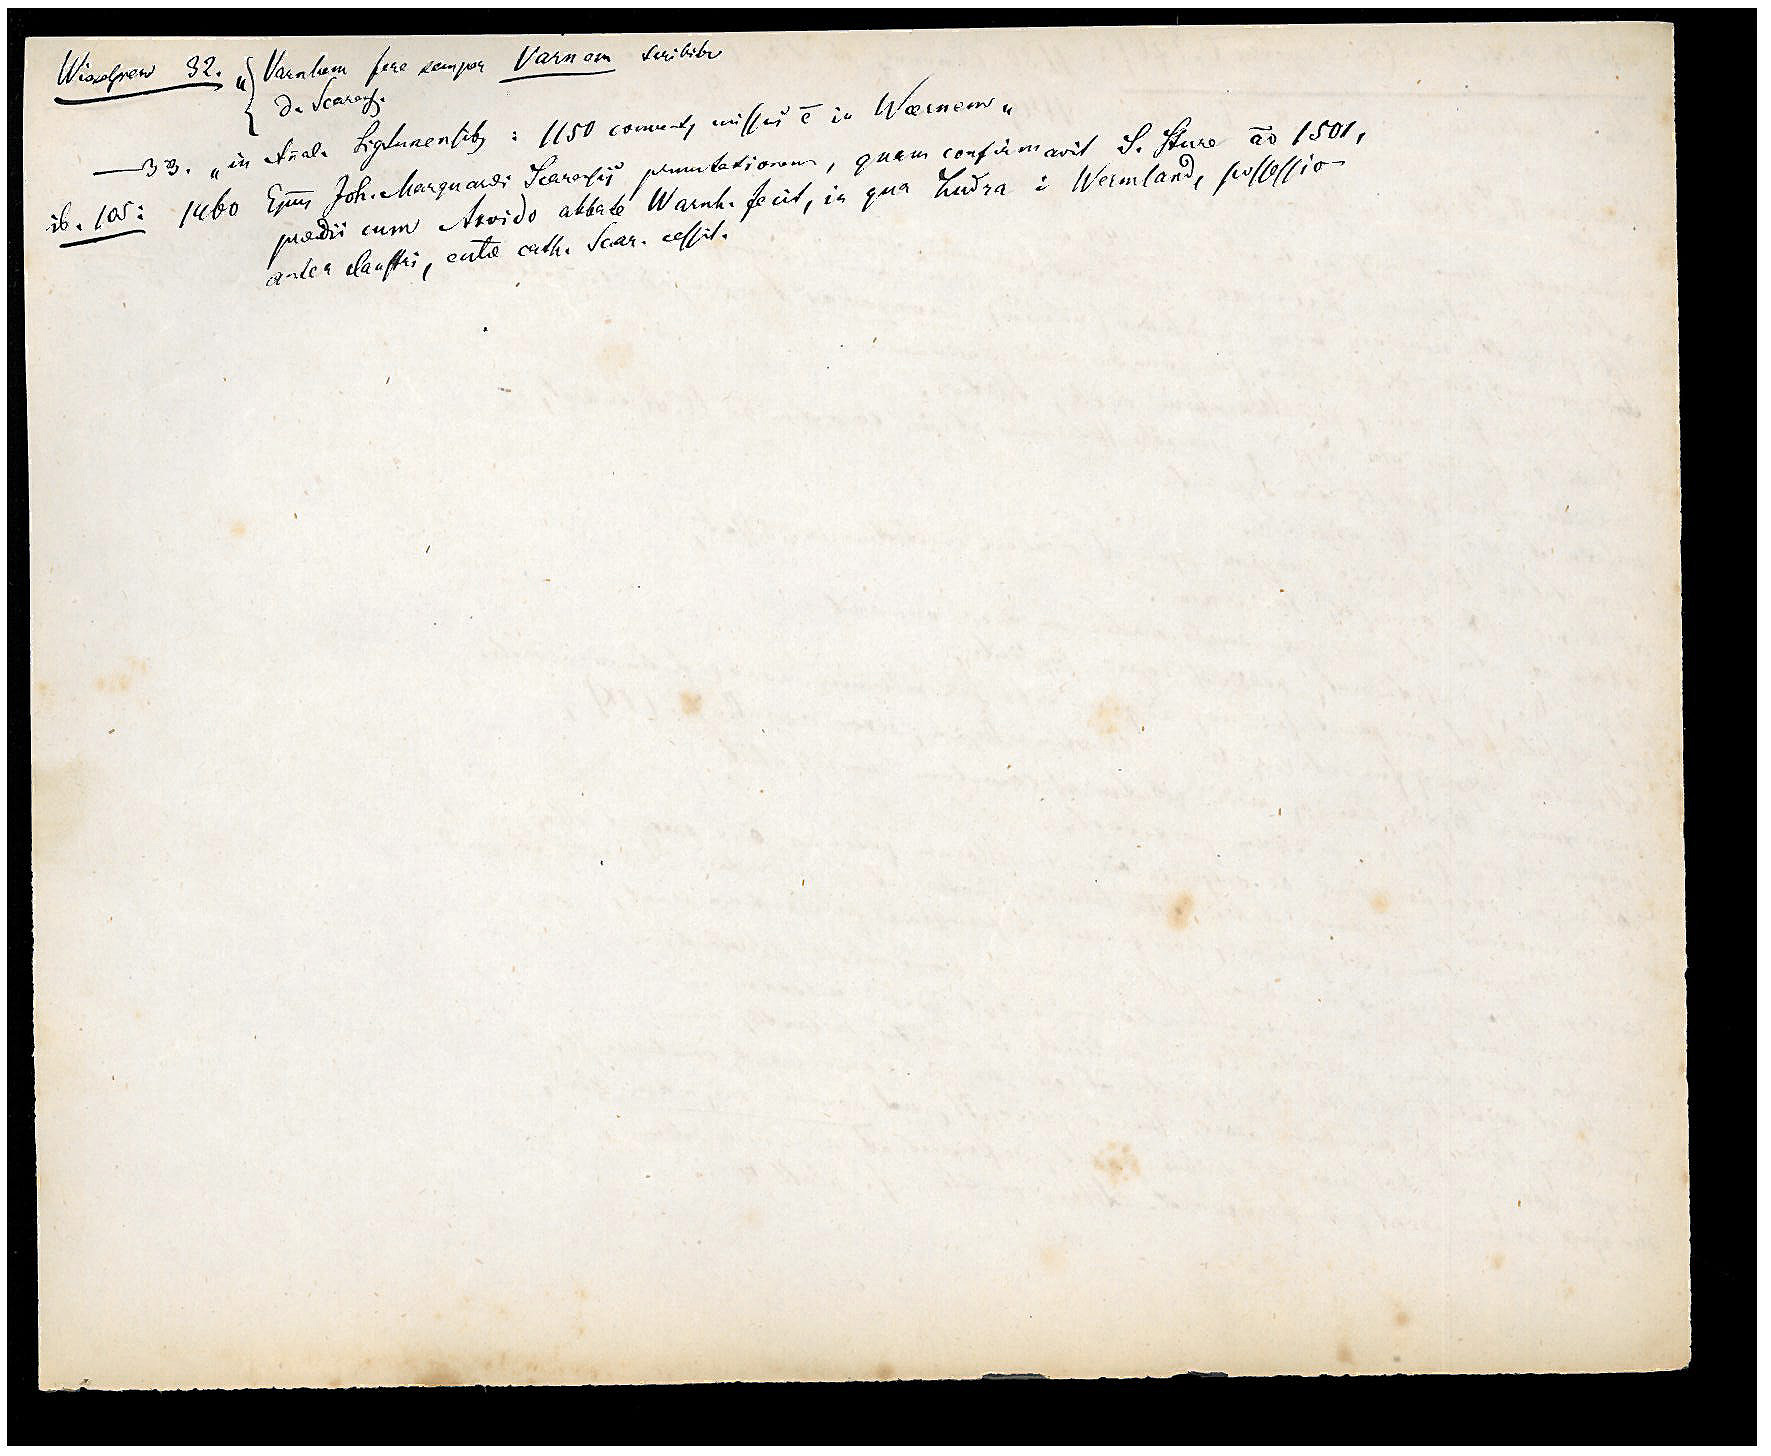 Wieselgren 32. „ { Varnhem fere semper Varnem scribitr
d. Scarens.
— 33. „in Añal. Sigtunensibꝫ : 1150 conventꝫ missus ē in Wærnem„
ib. 105: 1460 Epus Joh. Marquardi Scarensis permutationem, quam confirmavit S. Sture āo 1501,
prædii cum Arvido abbate Warnh. fecit, in qua i Wermland, possessio
antea claustri, cath. Scar. cessit.